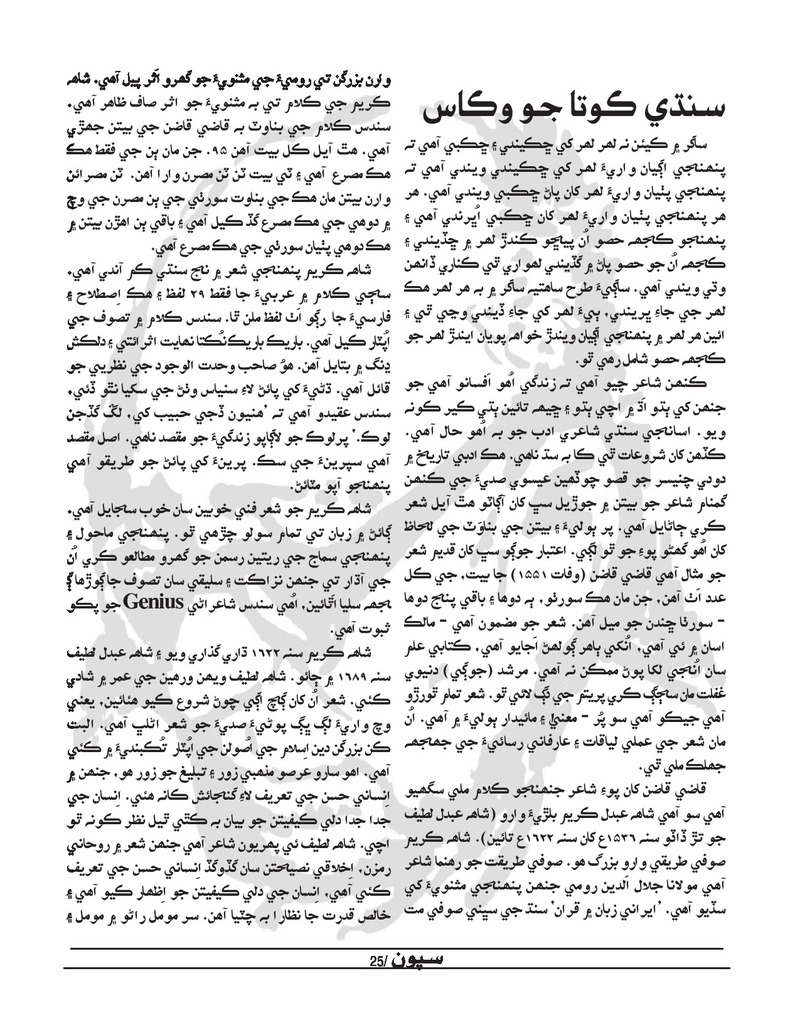 سنڌي ڪوتا جو وڪاس
ساگر ۾ ڪيئن نہ لھر لھر کي ڇڪيندي ۽ ڇڪبي آھي تہ
پنھنجي اڳيان واريءَ لھر کي ڇڪيندي ويندي آھي تہ
پنھنجي پٺيان واريءَ لھر کان پاڻ ڇڪبي ويندي آھي. ھر
ھر پنھنجي پٺيان واريءَ لھر کان ڇڪبي اُڀرندي آھي ۽
پنھنجو ڪجھہ حصو اُن پياڇو ڪندڙ لھر ۾ ڇڏيندي ۽
ڪجھہ اُن جو حصو پاڻ ۾ گڏيندي لھواري ٿي ڪناري ڏانھن
وٽي ويندي آھي. ساڳيءَ طرح ساھتيہ ساگر ۾ بہ ھر لھر ھڪ
لھر جي جاءِ ڀريندي، ٻيءَ لھر کي جاءِ ڏيندي وڃي ٿي ۽
ائين ھر لھر ۾ پنھنجي اڳيان ويندڙ خواھہ پويان ايندڙ لھر جو
ڪجھہ حصو شامل رھي ٿو.
ڪنھن شاعر چيو آھي تہ زندگي اُھو اَفسانو آھي جو
جنھن کي ٻڌو اَڌ ۾ اچي ٻڌو ۽ ڇيھہ تائين ٻڌي ڪير ڪونہ
ويو. اسانجي سنڌي شاعري ادب جو بہ اُھو حال آھي.
ڪڏھن کان شروعات ٿي ڪا بہ سڌ ناھي. ھڪ ادبي تاريخ ۾
دودي چنيسر جو قصو چوڏھين عيسوي صديءَ جي ڪنھن
گمنام شاعر جو بيتن ۾ جوڙيل سڀ کان آڳاٽو ھٿ آيل شعر
ڪري ڄاڻايل آھي. پر ٻوليءَ ۽ بيتن جي بناوٽ جي لحاظ
کان اُھو گھڻو پوءِ جو ٿو لڳي. اعتبار جوڳو سڀ کان قديم شعر
جو مثال آھي قاضي قاضن (وفات ۱۵۵۱) جا بيت، جي ڪل
عدد اٺ آھن، جن مان ھڪ سورٺو، ٻہ دوھا ۽ باقي پنج دوھا
– سورٺا ڇندن جو ميل آھن. شعر جو مضمون آھي – مالڪ
اسان ۾ ئي آھي، اُنکي ٻاھر ڳولھڻ اَجايو آھي، ڪتابي علم
سان اُنجي لکا پوڻ ممڪن نہ آھي. مرشد (جوڳي) دنيوي
غفلت مان سڄڳ ڪري پريتم جي ڏَڳ لائي ٿو. شعر تمام ٿورڙو
آھي جيڪو آھي سو پُر – معنيٰ ۽ مائيدار ٻوليءَ ۾ آھي. اُن
مان شعر جي عملي لياقات ۽ عارفاني رسائيءَ جي جھجھہ
جھلڪ ملي ٿي.
قاضي قاضن کان پوءِ شاعر جنھنجو ڪلام ملي سگھيو
آھي سو آھي شاھہ عبدل ڪريم بلڙيءَ وارو (شاھہ عبدل لطيف
جو تڙ ڏاڏو سنہ ۱۵۳۶ع کان سنہ ۱۶۲۲ع تائين). شاھہ ڪريم
صوفي طريقي وارو بزرگ ھو. صوفي طريقت جو رھنما شاعر
آھي مولانا جلال الدين رومي جنھن پنھنجي مثنويءَ کي
سڏيو آھي. ’ايراني زبان ۾ قران‘ سنڌ جي سڀني صوفي مت
وارن بزرگن تي روميءَ جي مثنويءَ جو گھرو اَثر پيل آھي. شاھہ
ڪريم جي ڪلام تي بہ مثنويءَ جو اثر صاف ظاھر آھي.
سندس ڪلام جي بناوٽ بہ قاضي قاضن جي بيتن جھڙي
آھي. ھٿ آيل ڪل بيت آھن ۹۵. جن مان ٻن جي فقط ھڪ
ھڪ مصرع آھي ۽ ٽي بيت ٽن ٽن مصرن وارا آھن. ٽن مصرائن
وارن بيتن مان ھڪ جي بناوت سورٺي جي ٻن مصرن جي وچ
۾ دوھي جي ھڪ مصرع گڏ ڪيل آھي ۽ باقي ٻن اھڙن بيتن ۾
ھڪ دوھي پٺيان سورٺي جي ھڪ مصرع آھي.
شاھہ ڪريم پنھنجي شعر ۾ ناج سنڌي ڪم آندي آھي.
سڄي ڪلام ۾ عربيءَ جا فقط ۲۹ لفظ ۽ ھڪ اِصطلاح ۽
فارسيءَ جا رڳو اٺ لفظ ملن ٿا. سندس ڪلام ۾ تصوف جي
اُپٽار ڪيل آھي. باريڪ باريڪ نُڪتا نھايت اثرائتي ۽ دلڪش
ڍنگ ۾ بتايل آھن. ھوُ صاحب وحدت الوجود جي نظريي جو
قائل آھي. ڌڻيءَ کي پائڻ لاءِ سنياس وٺڻ جي سکيا نٿو ڏئي،
سندس عقيدو آھي تہ ’ھنيون ڏجي حبيب کي، لڱ گڏجن
لوڪ.‘ پرلوڪ جو لاڳاپو زندگيءَ جو مقصد ناھي. اصل مقصد
آھي سپرينءَ جي سڪ. پرينءَ کي پائڻ جو طريقو آھي
پنھنجو آپو مٽائڻ.
شاھہ ڪريم جو شعر فني خوبين سان خوب سجايل آھي.
ڳائڻ ۾ زبان تي تمام سولو چڙھي ٿو. پنھنجي ماحول ۽
پنھنجي سماج جي ريتين رسمن جو گھرو مطالعو ڪري اُن
جي آڌار تي جنھن نزاڪت ۽ سليقي سان تصوف جا ڳوڙھا ڳ
جھہ سليا اٿائين، اُھي سندس شاعراڻي Genius جو پڪو
ثبوت آھي.
شاھہ ڪريم سنہ ۱۶۲۲ ڌاري گذاري ويو ۽ شاھہ عبدل لطيف
سنہ ۱۶۸۹ ۾ ڄائو. شاھہ لطيف ويھن ورھين جي عمر ۾ شادي
ڪئي. شعر اُن کان ڳچ اڳي چوڻ شروع ڪيو ھئائين، يعني
وچ واريءَ لڳ ڀڳ پوڻيءَ صديءَ جو شعر اڻلڀ آھي. البت
ڪن بزرگن دين اِسلام جي اُصولن جي اُپٽار تُڪبنديءَ ۾ ڪئي
آھي. اھو سارو عرصو مذھبي زور ۽ تبليغ جو زور ھو، جنھن ۾
انساني حسن جي تعريف لاءِ گنجائش ڪانہ ھئي. اِنسان جي
جدا جدا دلي ڪيفيتن جو بيان بہ ڪٿي ٿيل نظر ڪونہ ٿو
اچي. شاھہ لطيف ئي پھريون شاعر آھي جنھن شعر ۾ روحاني
رمزن، اِخلاقي نصيحتن سان گڏوگڏ اِنساني حسن جي تعريف
ڪئي آھي، اِنسان جي دلي ڪيفيتن جو اِظھار ڪيو آھي ۽
خالص قدرت جا نظارا بہ چٽيا آھن. سر مومل راڻو ۾ مومل ۽
سپون /25